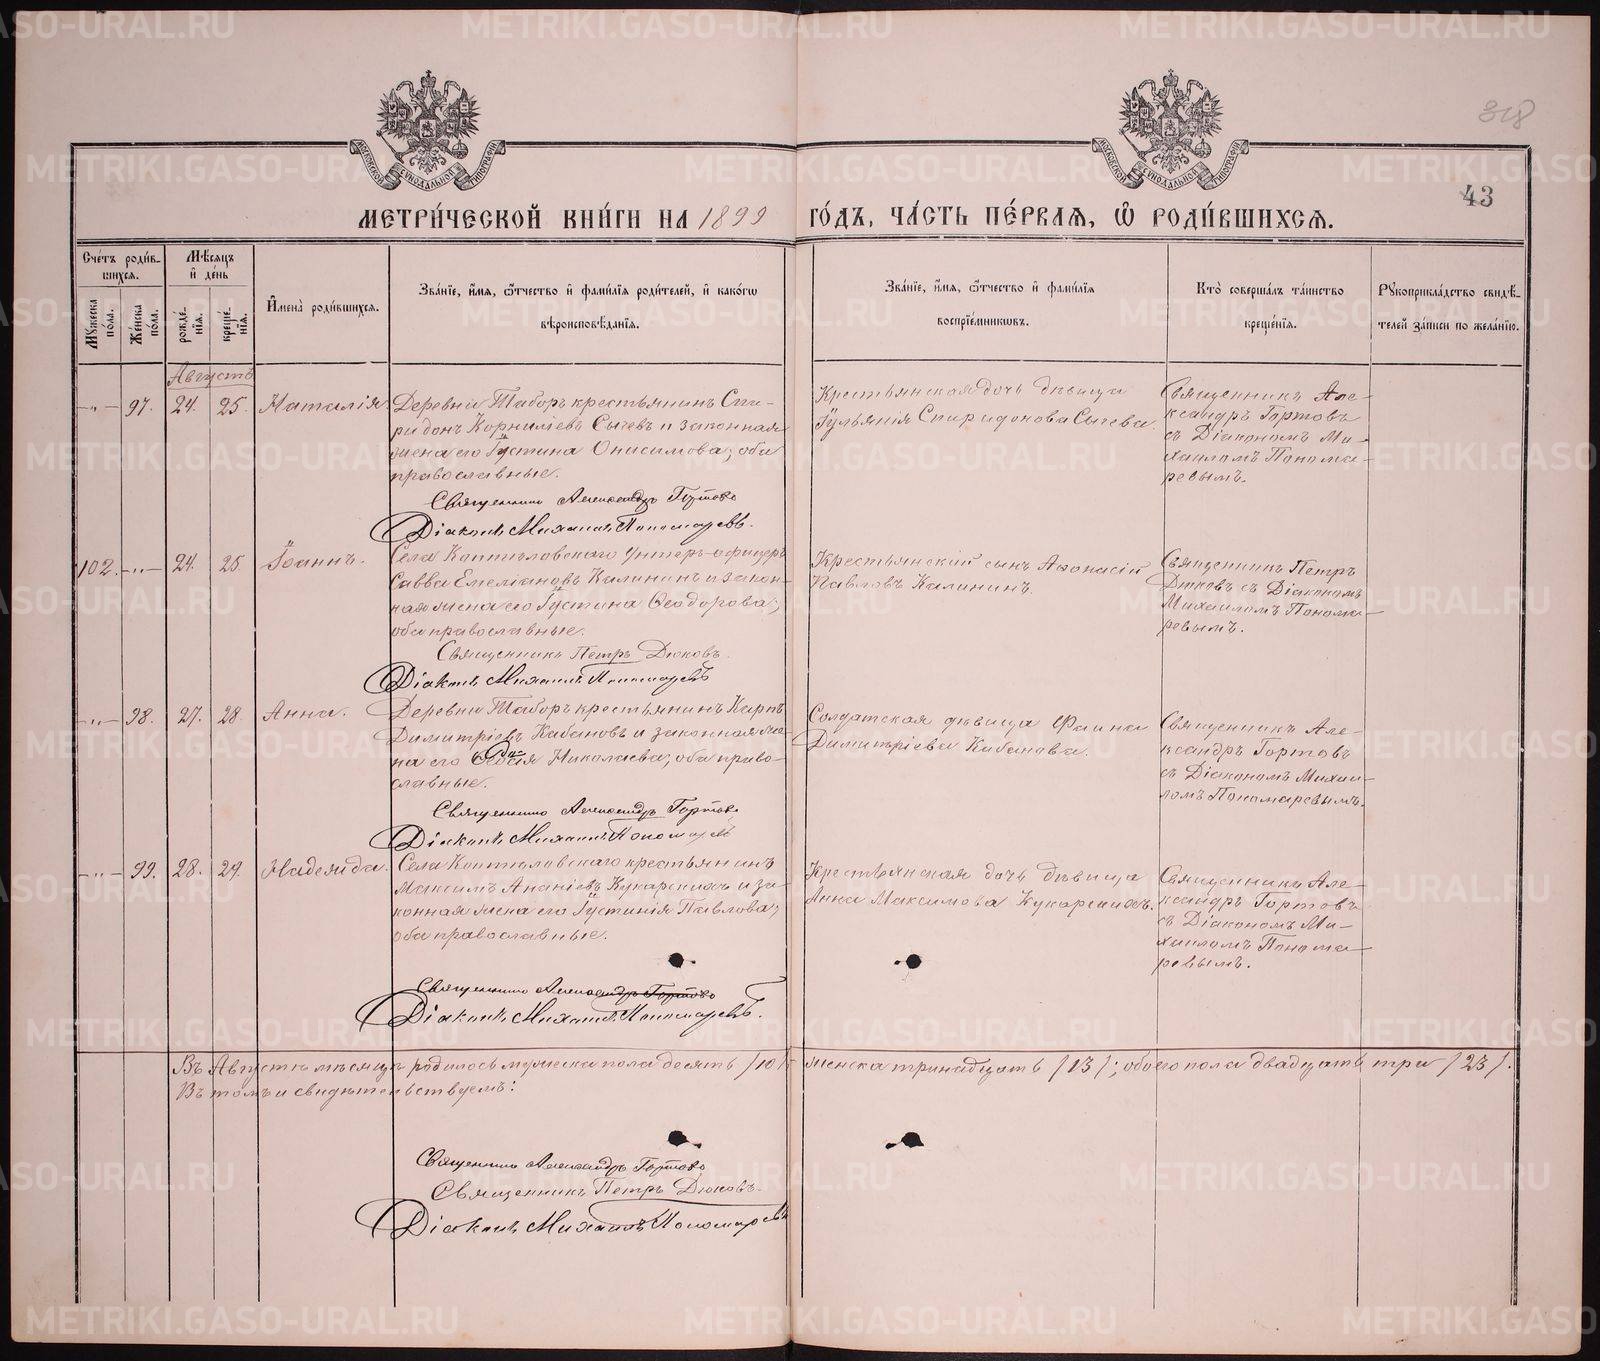 318
43
МЕТРИ́ЧЕСКОЙ КНИ́ГИ НА 1899 ГО́ДЪ, ЧА́СТЬ ПЕ́РВАѦ, Ѡ РОДИ́ВШИХСѦ.
Сче́тъ роди́вшихсѧ.
Мꙋ́жеска пола.
Же́нска по́ла.
Мѣ́сѧцъ и҆ де́нь
рожде́нїѧ.
креще́нїѧ.
И҆мена̀ роди́вшихсѧ.
Зва́нїе, и҆́мѧ, ѻ҆́тчество и҆ фами́лїѧ роди́телей, и҆ како́гѡ
вѣроисповѣ́данїѧ.
Зва́нїе, и҆́мѧ, ѻ҆́тчество и҆ фами́лїѧ
воспрїе́мникѡвъ.
Кто̀ соверша́лъ та́инство
креще́нїѧ.
Рꙋкоприкла́дство свидѣ́-
телей за́писи по жела́нїю.
Августъ
—„— 97. 24. 25. Наталія.
Деревни Таборъ крестьянинъ Спи-
ридонъ Корниліевъ Сычевъ и законная
жена его Іустина Онисимова; оба
православные.
Священникъ Александръ Гортовъ
Діаконъ Михаилъ Пономаревъ.
Крестьянская дочь дѣвица
Іульянія Спиридонова Сычева
Священникъ Але-
ксандръ Гортовъ
съ Діакономъ Ми-
хаиломъ Понома-
ревымъ.
102. —„— 24. 25. Іоаннъ.
Села Коптѣловскаго унтеръ-офицеръ
Савва Емеліановъ Калининъ и закон-
ная жена его Іустина Ѳеодорова;
оба православные.
Священникъ Петръ Дюковъ.
Діаконъ Михаилъ Пономаревъ
Крестьянскій сынъ Аѳонасій
Павловъ Калининъ.
Священникъ Петръ
Дюковъ съ Діакономъ
Михаиломъ Понома-
ревымъ.
—„— 98. 27. 28. Анна.
Деревни Таборъ крестьянинъ Карпъ
Димитріевъ Кабановъ и законная же-
на его Николаева; оба право-
славные.
Священникъ Александръ Гортовъ
Діаконъ Михаилъ Пономаревъ
Солдатская дѣвица Фаина
Димитріева Кабанова.
Священникъ Але-
ксандръ Гортовъ
съ Діакономъ Михаи-
ломъ Пономаревымъ.
—„— 99. 28. 29. Надежда.
Села Коптѣловскаго крестьянинъ
Максимъ Ананіевъ Кукарскихъ и за-
конная жена его Іустинія Павлова;
оба православные.
Священникъ Александръ Гортовъ
Діаконъ Михаилъ Пономаревъ.
Крестьянская дочь дѣвица
Анна Максимова Кукарскихъ.
Священникъ Але-
ксандръ Гортовъ
съ Діакономъ Ми-
хаиломъ Понома-
ревымъ.
Въ Августѣ мѣсяцѣ родилось мужеска пола десять /10/ женска тринадцать /13/; обоего пола двадцать три /23/.
Въ томъ и свидѣтельствуемъ:
Священникъ Александръ Гортовъ
Священникъ Петръ Дюковъ.
Діаконъ Михаилъ Пономаревъ
METRIKI.GASO-URAL.RU